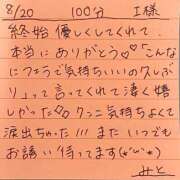 8/20 100分 I様
終始優しくしてくれて
本当にありがとう♡♡"こんな
にフェラで気持ちいいの久しぶ
り"って言ってくれて凄く嬉
しかった♡♡クンニ気持ちよくて
涙出ちゃった!!! また いつでも
お誘い待ってます(*'ω'*)
みと